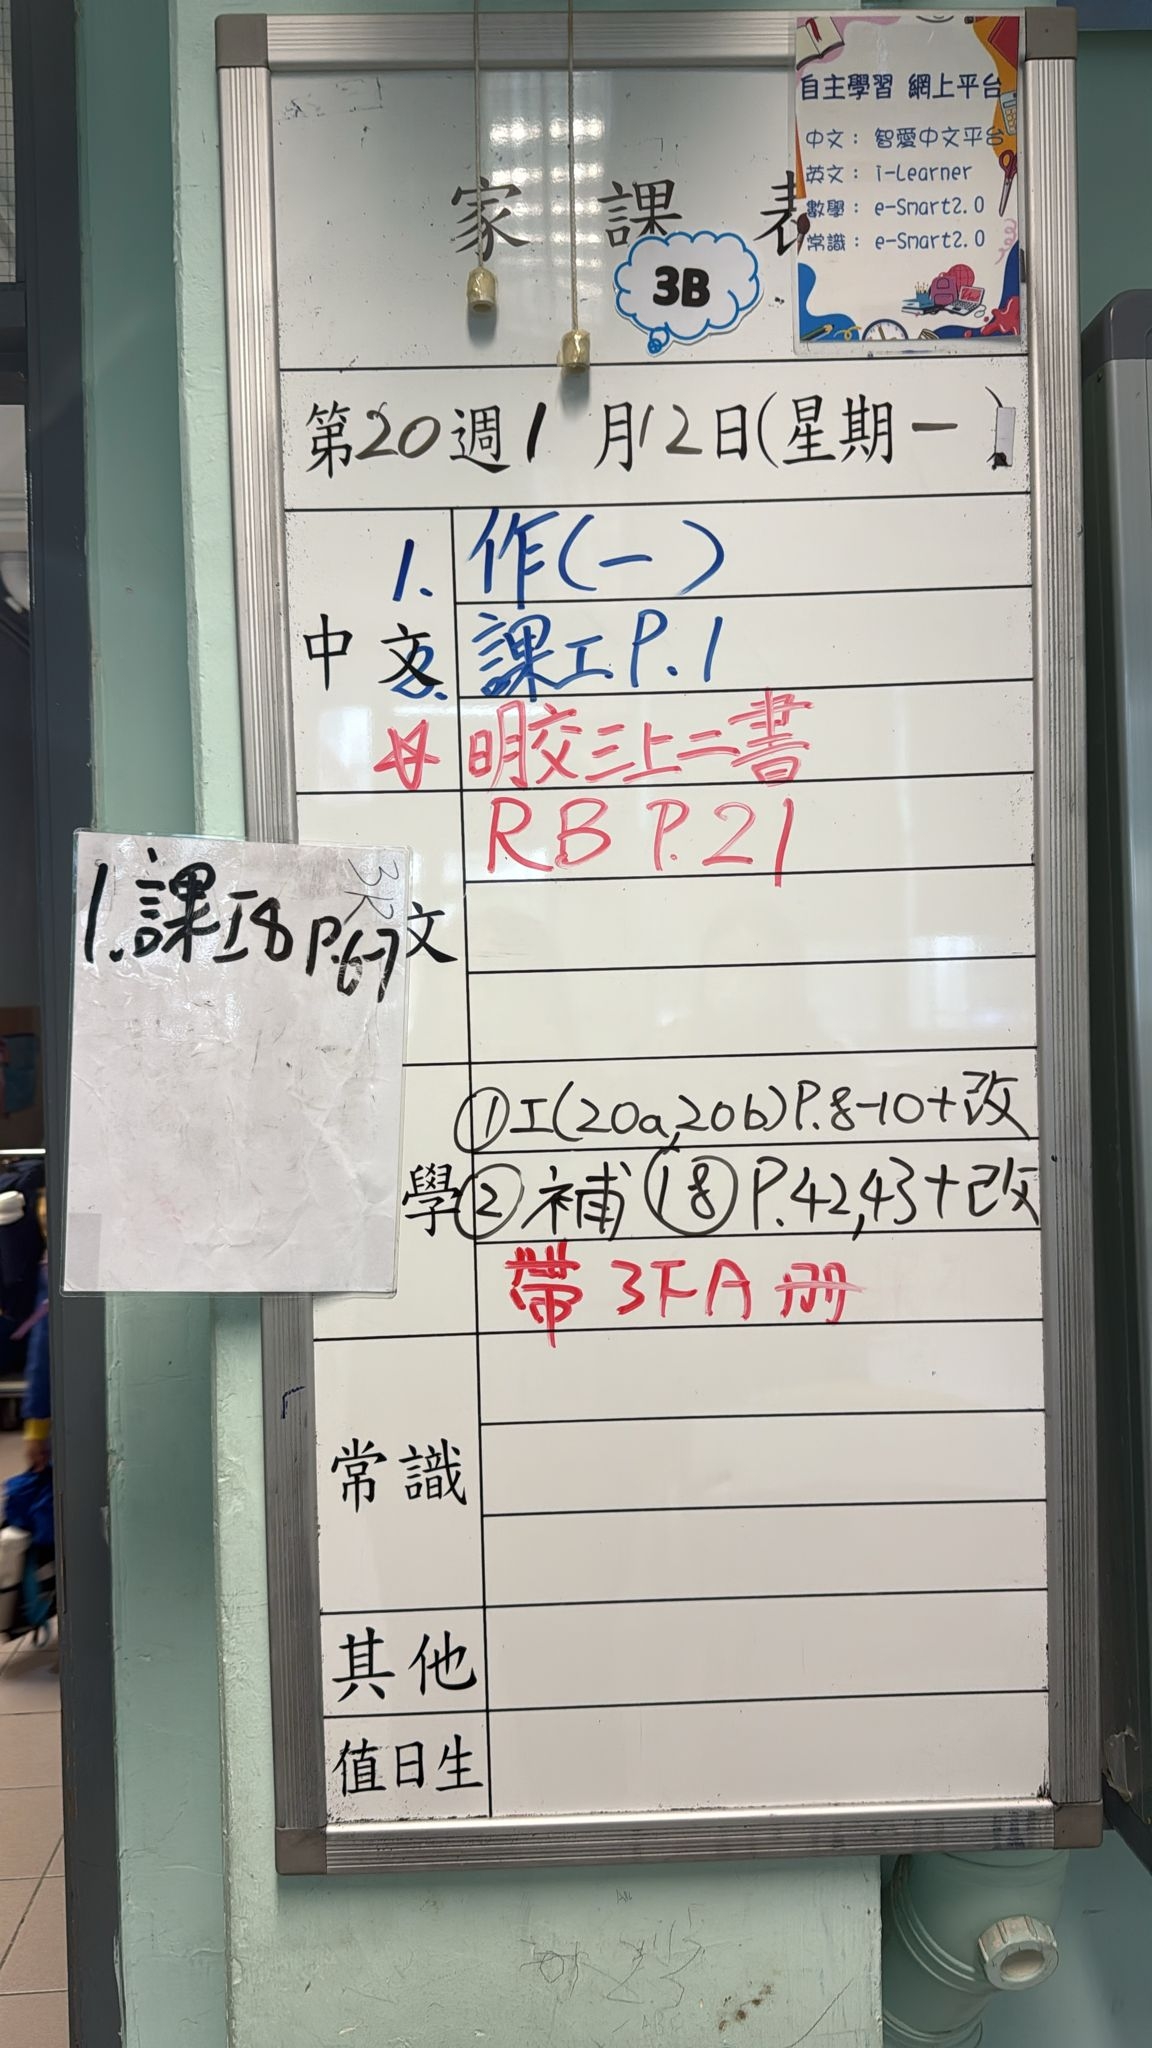 家課表
3B
自主學習 網上平台
中文： 智愛中文平台
英文： i-Learner
數學： e-Smart2.0
常識： e-Smart2.0
第20週1月12日(星期一)
中文
1. 作(一)
2. 課工P.1
☆ 明交三上二書
文
RB P.21
3R
1.課工8 P.6-7
學
①工(20a,20b)P.8-10+改
②補⑱P.42,43+改
帶3FA冊
常識
其他
值日生